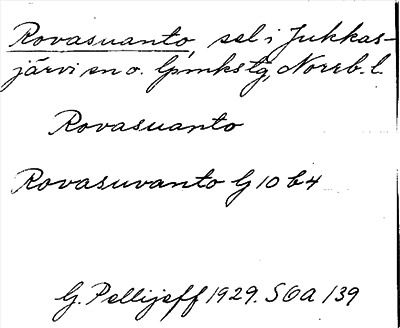 Rovasuanto, sel i Jukkas-
järvi sn o. lpmkstg, Norrb. l.
Rovasuanto
Rovasuvanto G 10 b 4
G. Pellijeff 1929. SOA 139